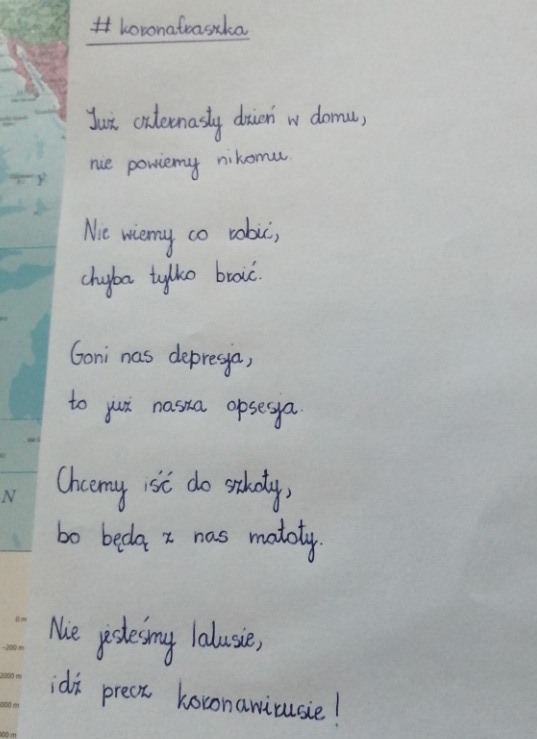 # koronafraszka
Już czternasty dzień w domu,
nie powiemy nikomu.
Nie wiemy co robić,
chyba tylko broić.
Goni nas depresja,
to już nasza opsesja.
Chcemy iść do szkoły,
bo będą z nas matoły.
Nie jesteśmy lalusie,
idź precz koronawirusie!
N
0 m
-200 m